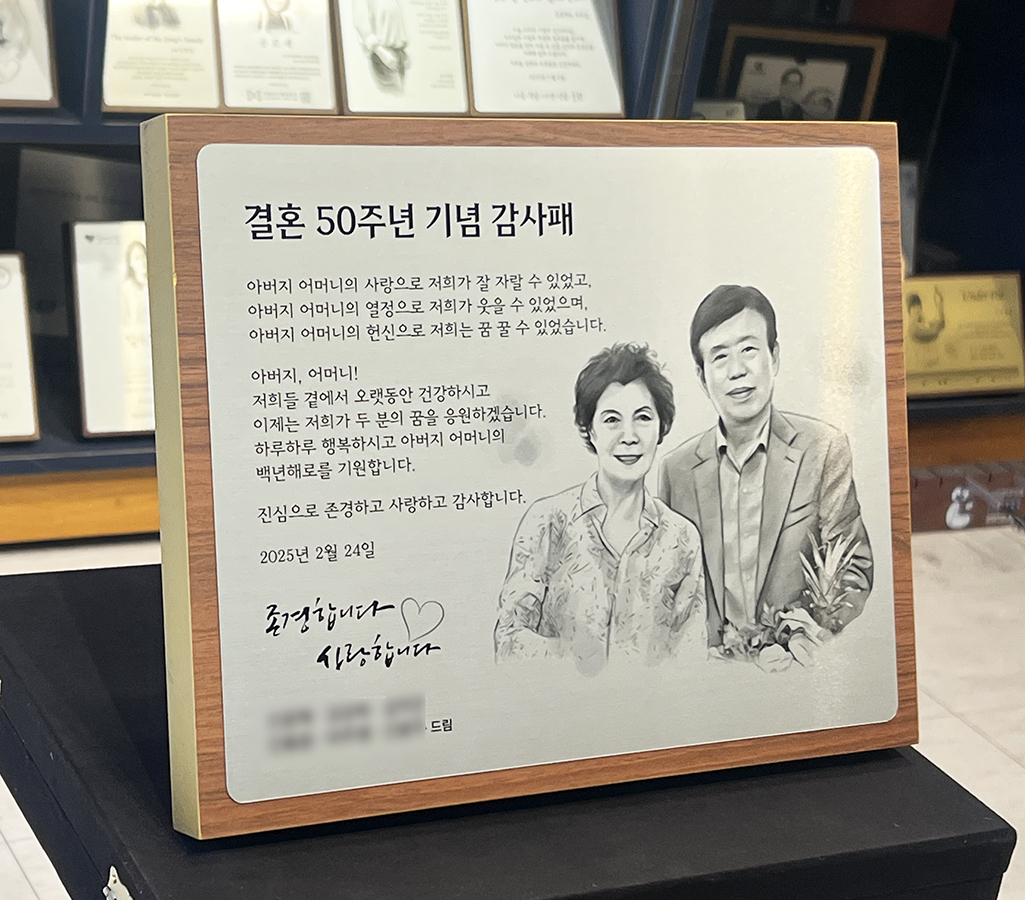 결혼 50주년 기념 감사패
아버지 어머니의 사랑으로 저희가 잘 자랄 수 있었고,
아버지 어머니의 열정으로 저희가 웃을 수 있었으며,
아버지 어머니의 헌신으로 저희는 꿈 꿀 수 있었습니다.
아버지, 어머니!
저희들 곁에서 오랫동안 건강하시고
이제는 저희가 두 분의 꿈을 응원하겠습니다.
하루하루 행복하시고 아버지 어머니의
백년해로를 기원합니다.
진심으로 존경하고 사랑하고 감사합니다.
2025년 2월 24일
존경합니다
사랑합니다
드림